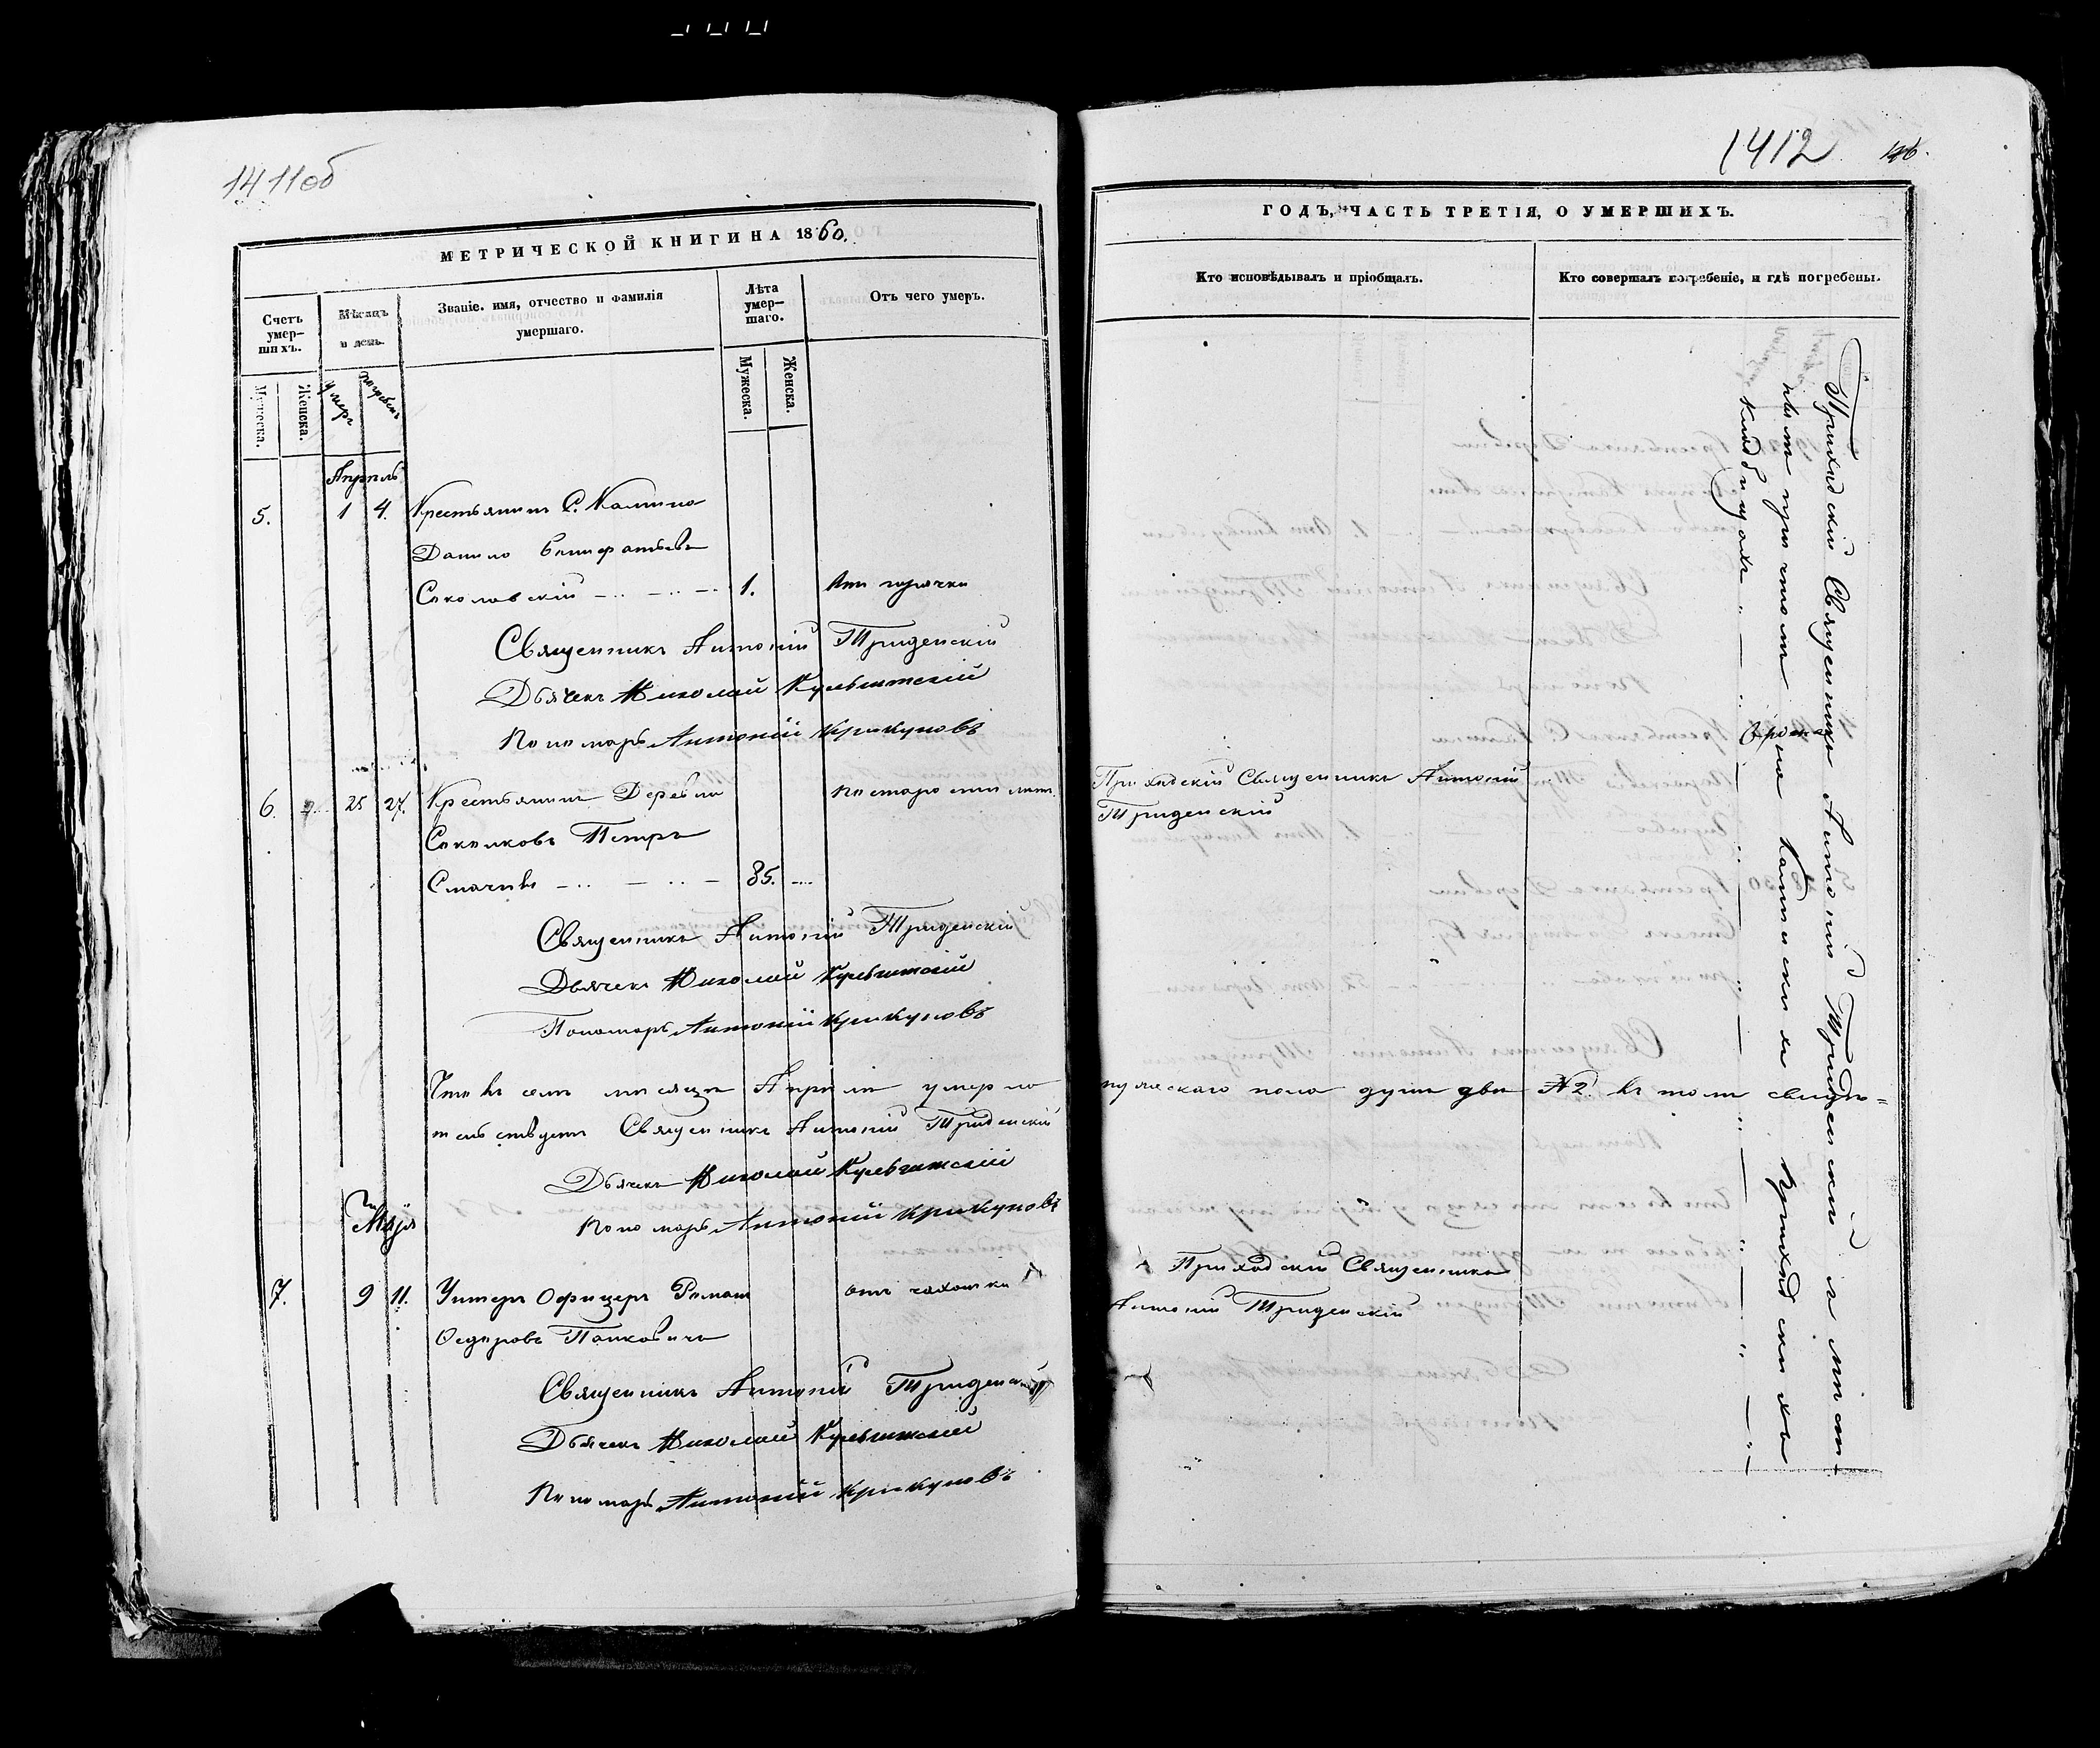 1411об
МЕТРИЧЕСКОЙ КНИГИ НА 1860.
Счетъ умер-шихъ.
Мѣсяцъ и день.
Званіе, имя, отчество и фамилія умершаго.
Лѣта умер-шаго.
Отъ чего умеръ.
Мужеска.
Женска.
умеръ
погребенъ
Мужеска.
Женска.
Апрѣль
5. 1 4. Крестьянинъ С. Камина
Данило
Соколовскій 1. Отъ горячки
Священникъ Антоній Триденскій
Дьячекъ Николай Кульчитскій
Пономарь Антоній Крикуновъ
6. 25 27. Крестьянинъ Деревни По старости лѣтъ
Петръ
85.
Священникъ Антоній Триденскій
Дьячекъ Николай Кульчитскій
Пономарь Антоній Крикуновъ
Что въ семъ мѣсяцѣ Апрѣлѣ умерло
тельствуетъ Священникъ Антоній Триденскій
Дьячекъ Николай Кульчитскій
Пономарь Антоній Крикуновъ
7. 9 11. Унтеръ Офицеръ Романъ отъ чахотки
Федоровъ Панковичъ
Священникъ Антоній Триденскій
Дьячекъ Николай Кульчитскій
Пономарь Антоній Крикуновъ
1412
ГОДЪ, ЧАСТЬ ТРЕТІЯ, О УМЕРШИХЪ.
Кто исповѣдывалъ и пріобщалъ.
Кто совершалъ погребеніе, и гдѣ погребены.
Приходскій Священникъ Антоній
Триденскій
мужескаго пола душъ двѣ №2. въ томъ свидѣ=
Приходскій Священникъ
Антоній Триденскій
Приходскій Священникъ Антоній Триденскій съ
причтомъ на Каминскихъ приходскихъ
кладбищахъ